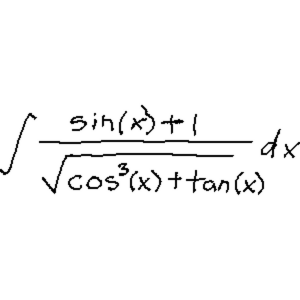 ∫ (sin(x)+1)/√(cos³(x)+tan(x)) dx